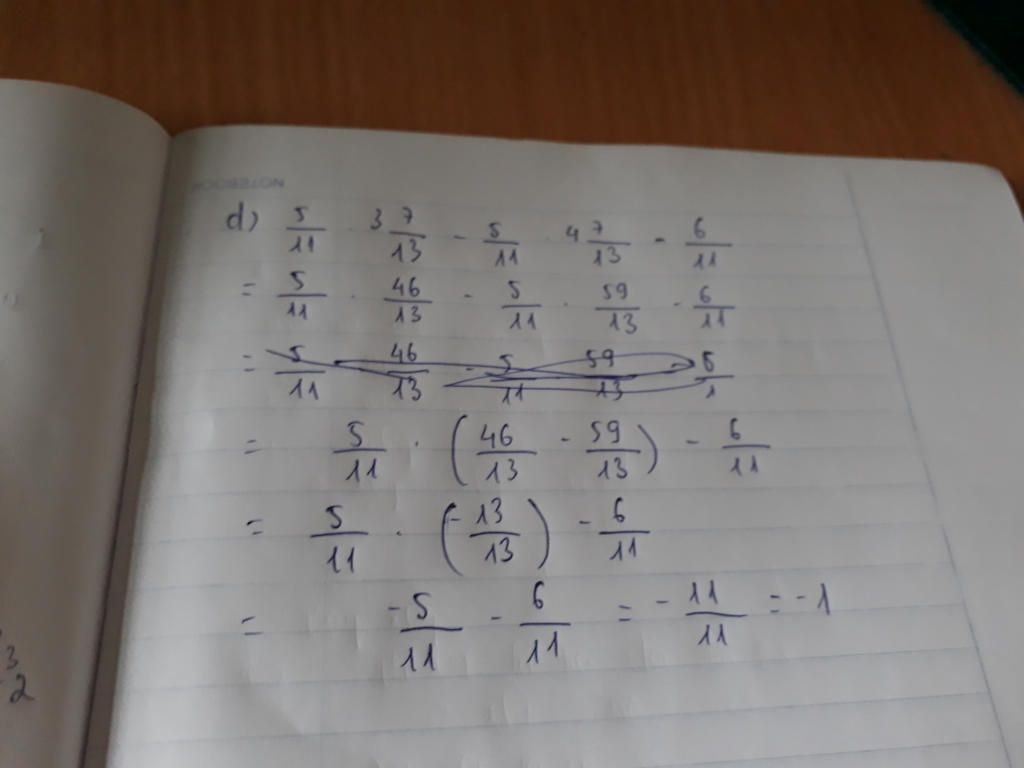 NOTEBOOK
d) 5/11 · 3 7/13 - 5/11 · 4 7/13 - 6/11
= 5/11 · 46/13 - 5/11 · 59/13 - 6/11
= 5/11 46/13 - 5/11 59/13
= 5/11 · (46/13 - 59/13) - 6/11
= 5/11 · (-13/13) - 6/11
= -5/11 - 6/11 = -11/11 = -1
3
2